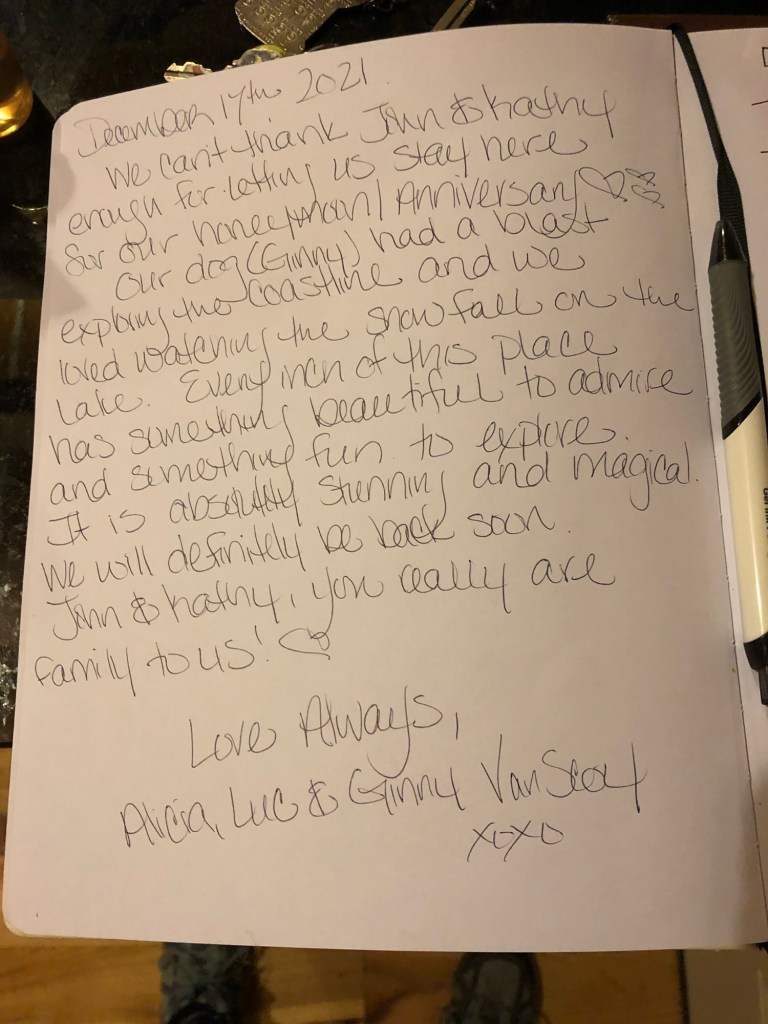 December 17th 2021.
We can't thank John & Kathy
enough for letting us stay here
for our honeymoon/Anniversary
Our dog (Ginny) had a blast
exploring the coastline and we
loved watching the snow fall on the
Lake. Every inch of this place
has something beautiful to admire
and something fun to explore.
It is absolutely stunning and magical.
We will definitely be back soon.
John & Kathy, you really are
family to us!
Love Always,
Alicia, Luc & Ginny VanScoy
xoxo